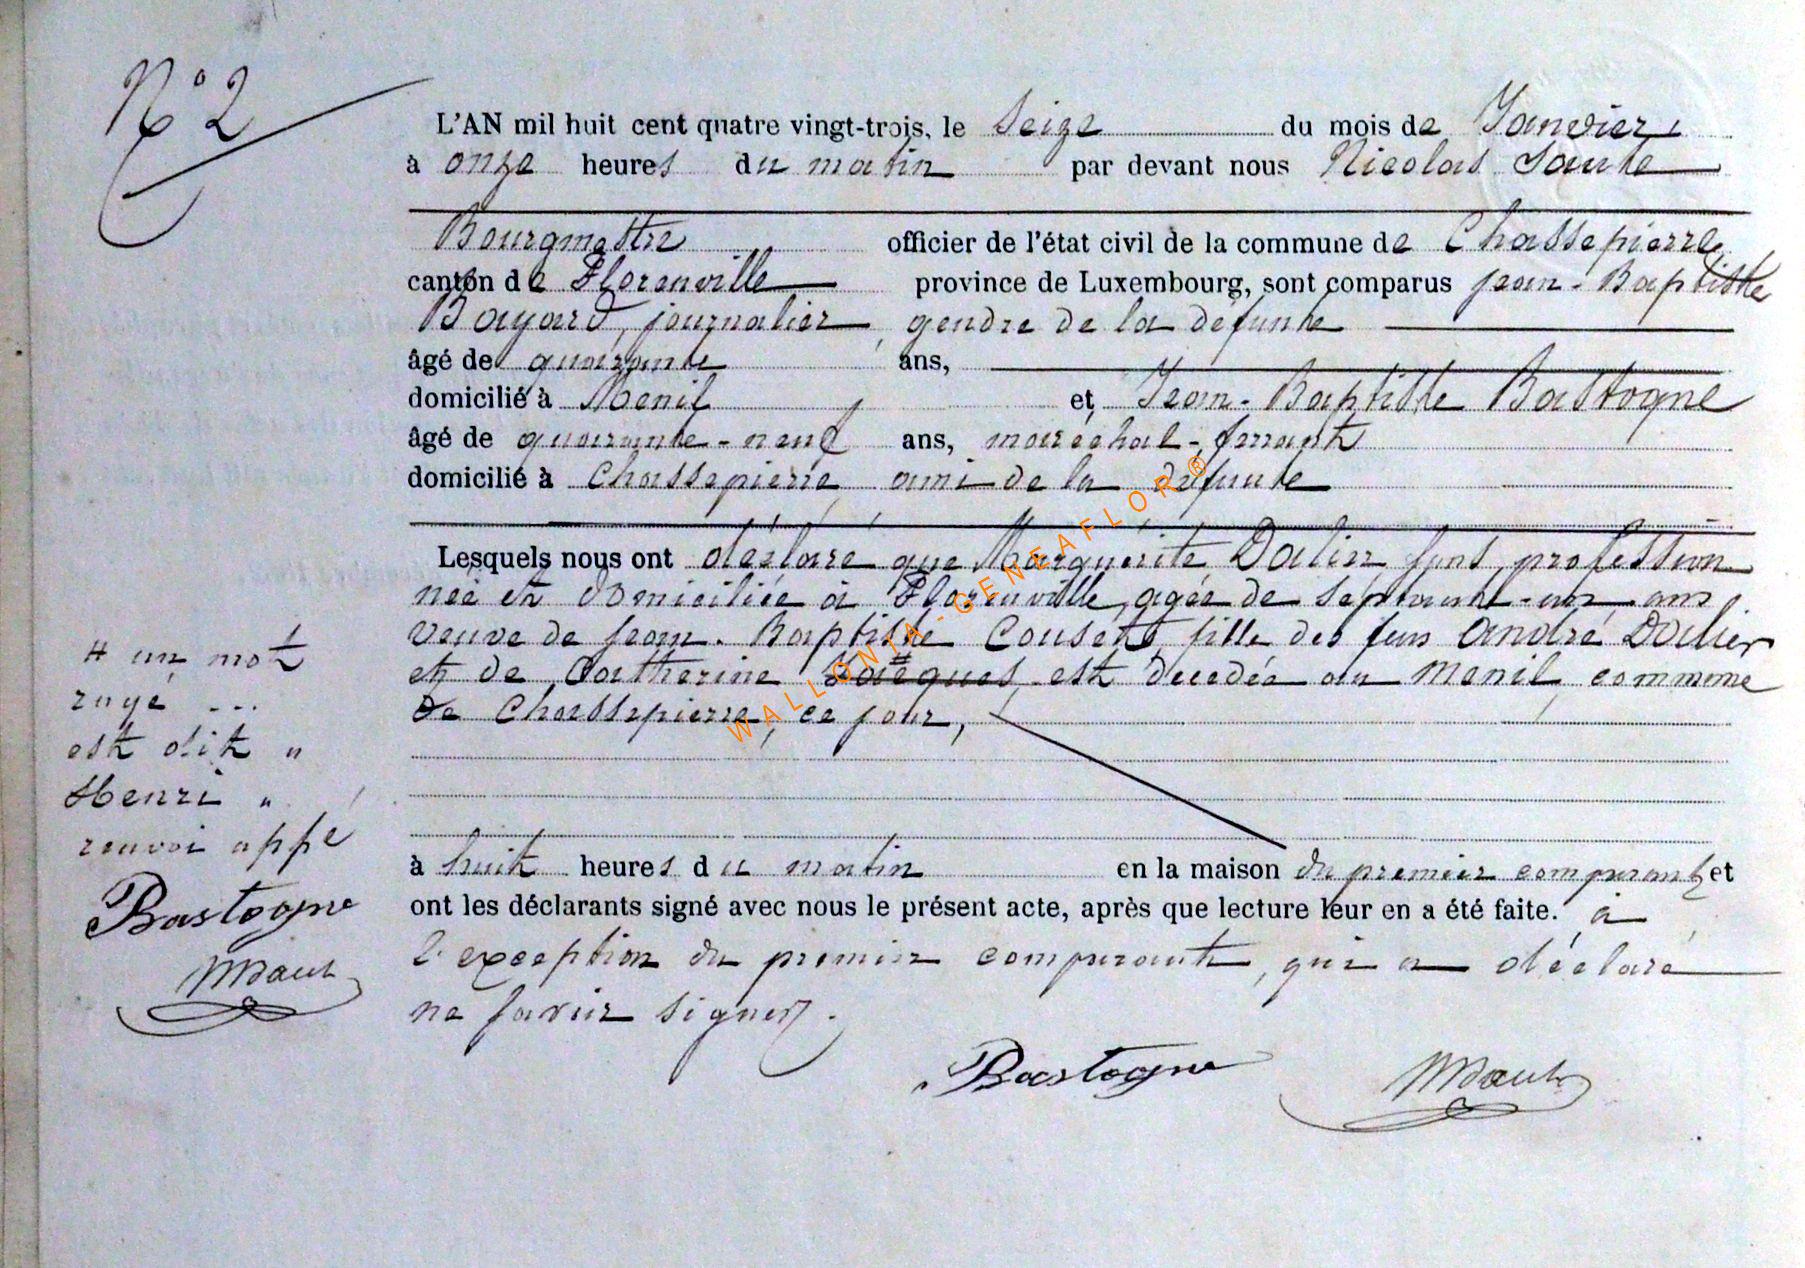 N° 2
L'AN mil huit cent quatre vingt-trois, le Seize du mois de Janvier,
à onze heures du matin par devant nous Nicolas
Bourgmestre officier de l'état civil de la commune de Chassepierre,
canton de Florenville province de Luxembourg, sont comparus jean-Baptiste
Bayard, journalier, gendre de la defunte
âgé de quarante ans,
domicilié à Menil et Jean-Baptiste Bastogne
âgé de quarante-neuf ans, maréchal-ferrant
domicilié à Chassepierre, ami de la defunte
Lesquels nous ont déclaré que Marguerite Dalier sans profession
née et domiciliée à Florenville, agée de septante-un ans
veuve de jean-Baptiste fille des feus André Dalier
et de Catherine # Jacques, est decedée au Menil, commune
de Chassepierre, ce jour,
à huit heures du matin en la maison du premier comparant, et
ont les déclarants signé avec nous le présent acte, après que lecture leur en a été faite. à
l'exception du premier comparant, qui a déclaré
ne savoir signer.
Bastogne
# un mot
rayé ...
est dit "
Henri "
renvoi appé
Bastogne
WALLONIA-GENEAFLOR®